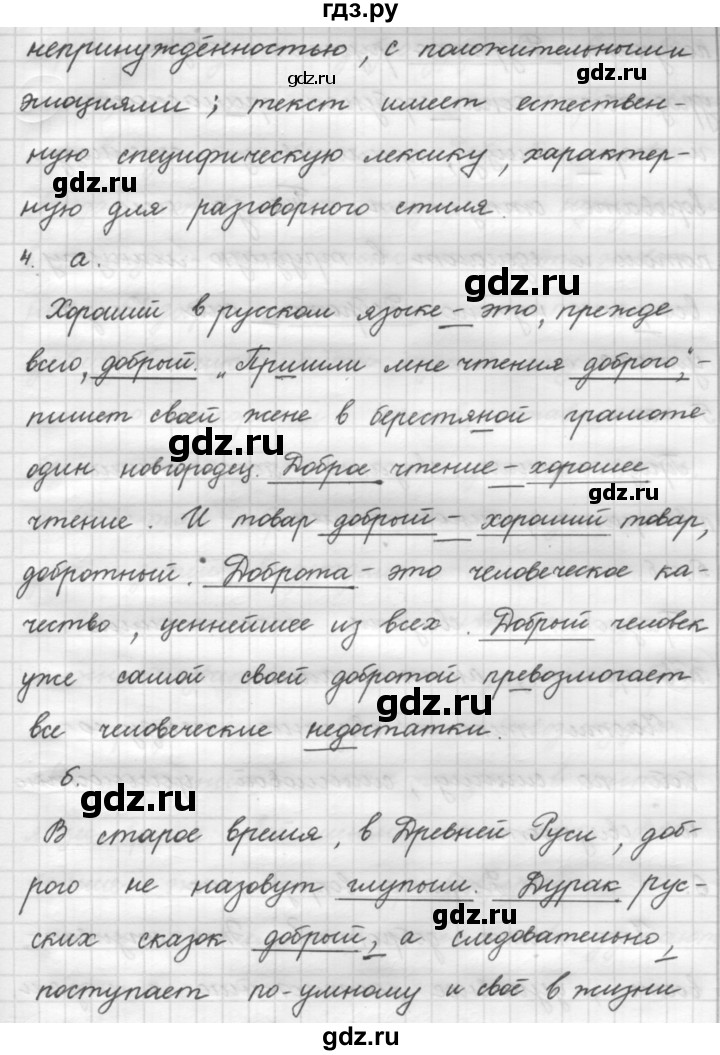 гдз.ру
непринуждённостью, с положительными
gdz.ru
gdz.ru
эмоциями; текст имеет естествен-
ную специфическую лексику, характер-
gdz.ru
ную для разговорного стиля.
4. а.
gdz.ru
Хороший в русском языке – это, прежде
всего, добрый. „Пришли мне чтения доброго", –
пишет своей жене в берестяной грамоте
gdz.ru
один новгородец. Доброе чтение – хорошее
gdz.ru
чтение. И товар добрый – хороший товар,
добротный. Доброта – это человеческое ка-
чество, ценнейшее из всех. Добрый человек
уже самой своей добротой превозмогает
gdz.ru
все человеческие недостатки.
б.
gdz.ru
В старое время, в Древней Руси, доб-
рого не назовут глупым. Дурак рус-
gdz.ru
ских сказок добрый, а следовательно,
поступает по-умному и своё в жизни
gdz.ru